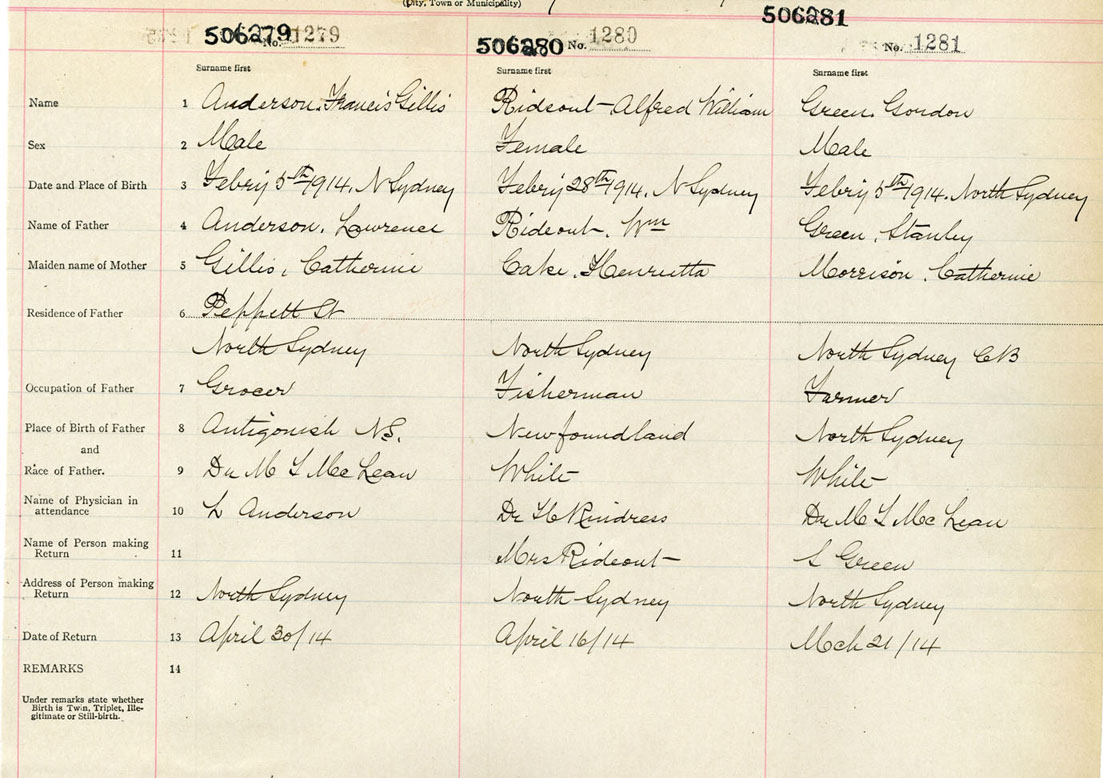 (City, Town or Municipality)
506279 No. 1279 506280 No. 1280 506281 No. 1281
Surname first Surname first Surname first
Name 1 Anderson. Francis Gillis Rideout - Alfred William Green. Gordon
Sex 2 Male Female Male
Date and Place of Birth 3 Febry 5th 1914. N Sydney Febry 28th 1914. N Sydney Febry 5th 1914. North Sydney
Name of Father 4 Anderson. Lawrence Rideout. Wm Green. Stanley
Maiden name of Mother 5 Gillis, Catherine Cake. Henrietta Morrison. Catherine
Residence of Father 6 Peppett St
North Sydney North Sydney North Sydney CB
Occupation of Father 7 Grocer Fisherman Farmer
Place of Birth of Father 8 Antigonish NS. Newfoundland North Sydney
and
Race of Father. 9 Dr M McLean White White
Name of Physician in
attendance 10 L Anderson Dr Dr M McLean
Name of Person making
Return 11 Mrs Rideout S Green
Address of Person making
Return 12 North Sydney North Sydney North Sydney
Date of Return 13 April 30/14 April 16/14 Mch 21/14
REMARKS 14
Under remarks state whether
Birth is Twin, Triplet, Ille-
gitimate or Still-birth.